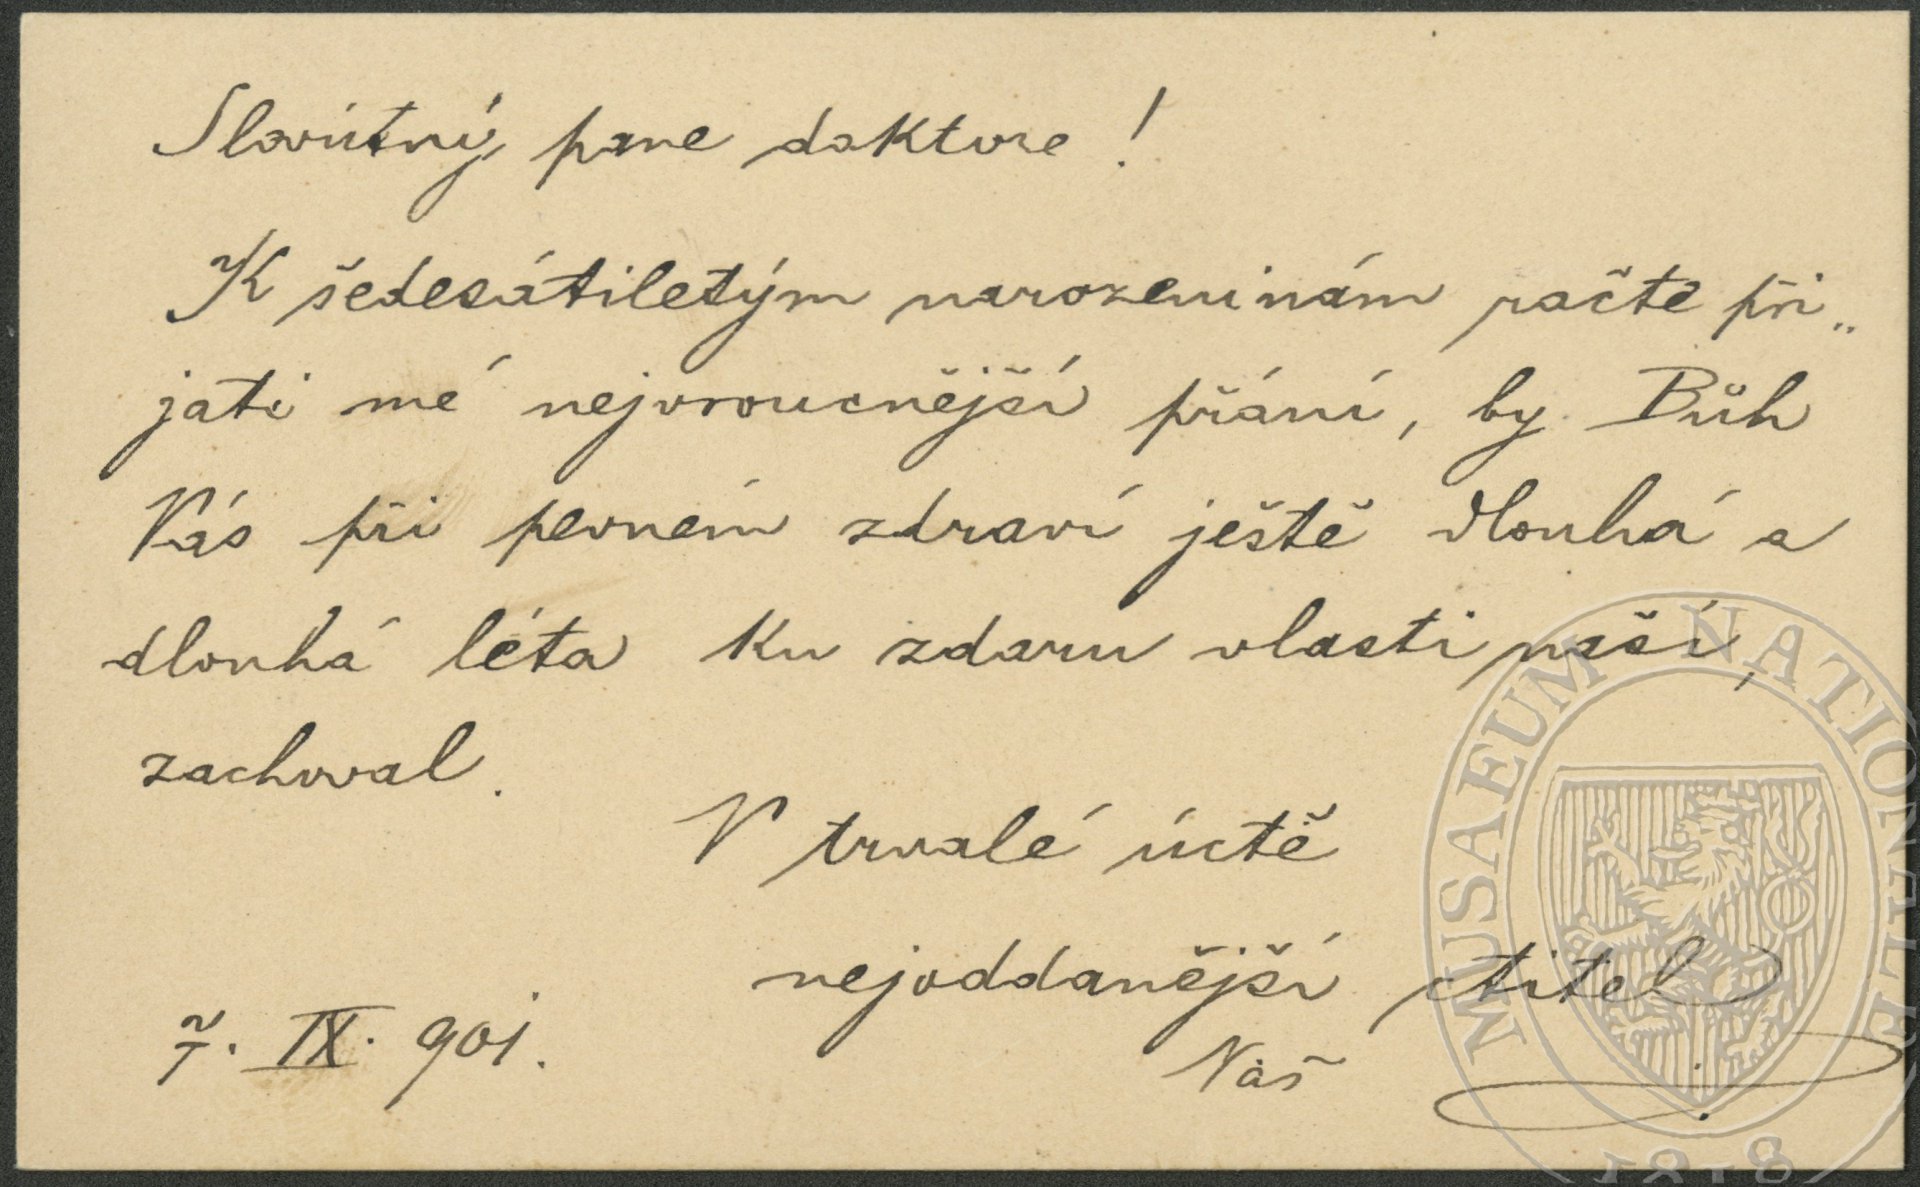 Slovútný pane doktore!
K šedesátiletým narozeninám račte při„
jati mé nejvroucnější přání, by Bůh
Vás při pevném zdraví ještě dlouhá a
dlouhá léta ku zdaru vlasti naší,
zachoval.
V trvalé úctě
nejoddanější ctitel
Váš
7. IX. 901.
MUSAEUM NATIONALE
1818